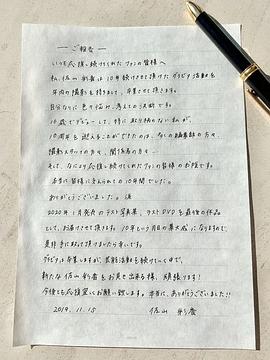 ― ご報告 ―
いつも応援し続けてくれたファンの皆様へ
私、佐山彩香は10年続けさせて頂けたグラビア活動を
年内の撮影を持ちまして、卒業させて頂きます。
自分なりに色々悩み、考えての決断です。
16歳でデビューして、特に取り柄のない私が、
10周年を迎えることができたのは、多くの編集部の方々、
撮影スタッフの方々、関係者の方々…
そして、なにより応援し続けてくれたファンの皆様のお陰です。
本当に皆様に支えられての10年間でした。
ありがとうございました。涙
2020年1月発売のラスト写真集、ラストDVDを最後の作品
として、お届けさせて頂きます。10年という月日の集大成になりますので、
是非手に取って頂けましたら幸いです。
グラビアは卒業しますが、芸能活動を続けていく中で、
新たな佐山彩香をお見せ出来る様、頑張ります!
今後とも応援宜しくお願い致します。本当に、ありがとうございました!!
2019.11.15 佐山 彩香